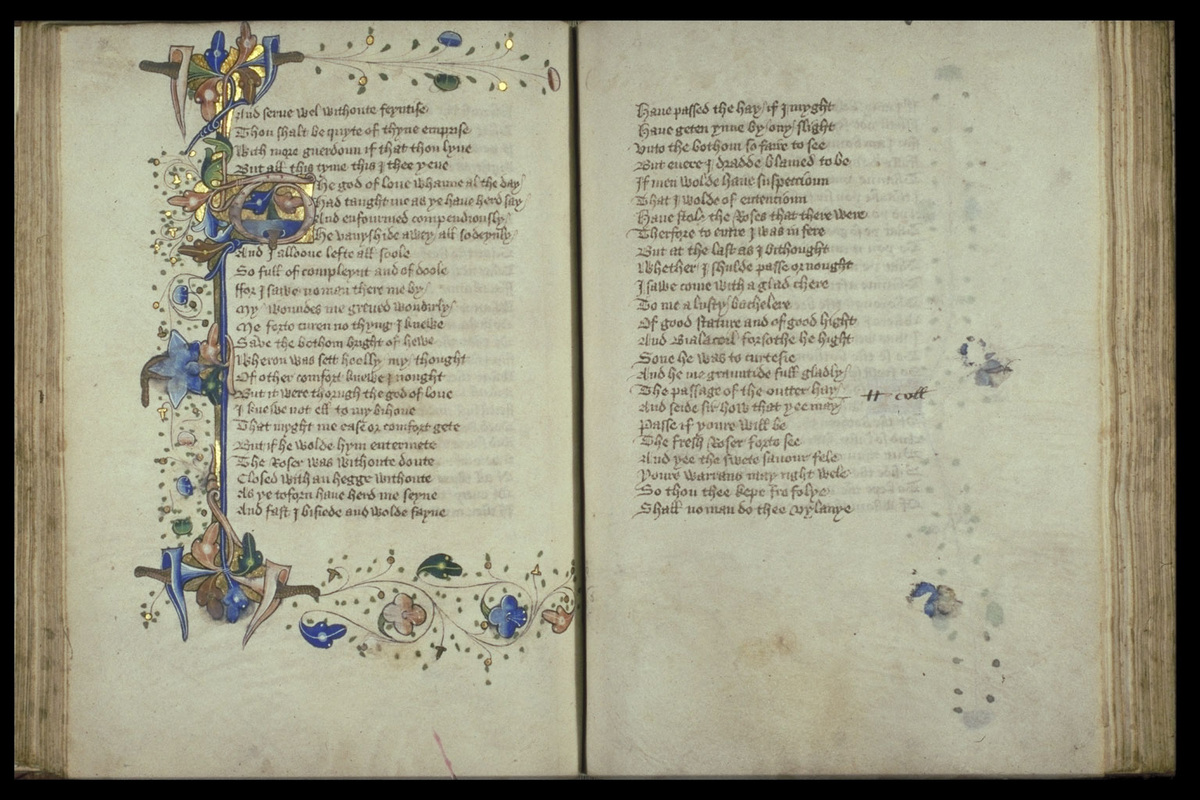 And serue wel withoute feyntise
Thou shalt be quyte of thyne emprise
With more guerdoun if that thou lyue
But all this tyme this I thee yeue
The god of loue whanne al the day
Had taught me as ye haue herd say
And enfourmed compendiously
He vanyshide awey all sodeynly
And I alloone lefte all soole
So full of compleynt and of doole
ffor I sawe no man there me by
My woundes me greued wondirly
Me forto curen no thyng I knewe
Saue the bothom bright of hewe
Wheron was sett hoolly my thought
Of other comfort knewe I nought
But it were thorugh the god of loue
I knewe not ell to my bihoue
That myght me ease or comfort gete
But if he wolde hym entermete
The Roser was withoute doute
Closed with an hegge withoute
As ye toforn haue herd me seyne
And fast I bisiede and wolde fayne
Haue passed the hay if I myght
Haue geten ynne by ony slight
Vnto the bothom so faire to see
But euere I dradde blamed to be
If men wolde haue suspeccioun
That I wolde of entencioun
Haue stole the Roses that there were
Therfore to entre I was in fere
But at the last as I bithought
Whether I shulde passe or nought
I sawe come with a glad chere
To me a lusty bachelere
Of good stature and of good hight
And Bialacoil forsothe he hight
Sone he was to curtesie
And he me grauntide full gladly
The passage of the outter hay
And seide sir how that yee may
Passe if youre will be
The fresh Roser forto see
And yee the swete sauour fele
Youre warrans may right wele
So thou thee kepe fro folye
Shall no man do thee vylanye